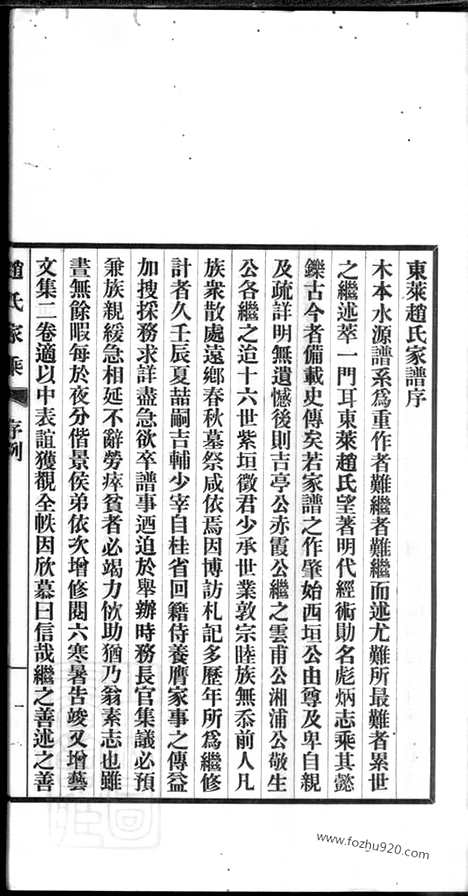 東萊趙氏家譜序
木本水源譜系爲重作者難繼而述尤難所最難者累世
之繼述萃一門耳東萊趙氏望著明代經術勛名彪炳志乘其懿
鑠古今者備載史傳矣若家譜之作肇始西垣公由尊及卑自親
及疏詳明無遺憾後則吉亭公赤霞公繼之雲甫公湘浦公敬生
公各繼之迨十六世紫垣徵君少承世業敦宗睦族無忝前人凡
族衆散處遠鄉春秋墓祭咸依焉因博訪札記多歷年所爲繼修
計者久壬辰夏喆嗣吉輔少宰自桂省回籍侍養膺家事之傳益
加搜採務求詳盡急欲卒譜事迺迫於舉辦時務長官集議必預
兼族親緩急相延不辭勞瘁貧者必竭力佽助猶乃翁素志也雖
晝無餘暇每於夜分偕景侯弟依次增修閱六寒暑告竣又增藝
文集二卷適以中表誼獲觀全帙因欣慕曰信哉繼之善述之善
趙氏家乘
序例
一
www.fozhu920.com